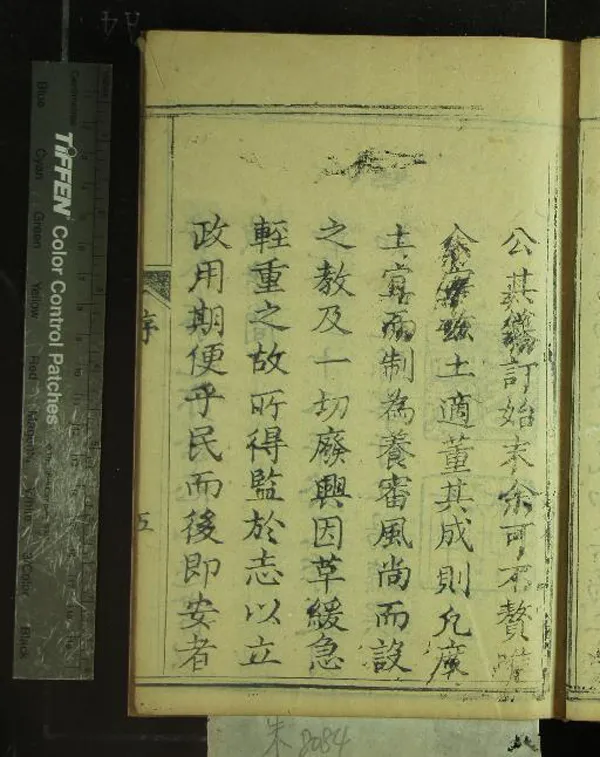 公其編訂始末余可不贅惟
余宰茲土適董其成則凡度
土宜而制為養審風尚而設
之教及一切廢興因革緩急
輕重之故所得監於志以立
政用期便乎民而後即安者
序
五
TIFFEN Color Control Patches
Blue
Cyan
Green
Yellow
Red
Magenta
White
3/Color
Black
朱 8084